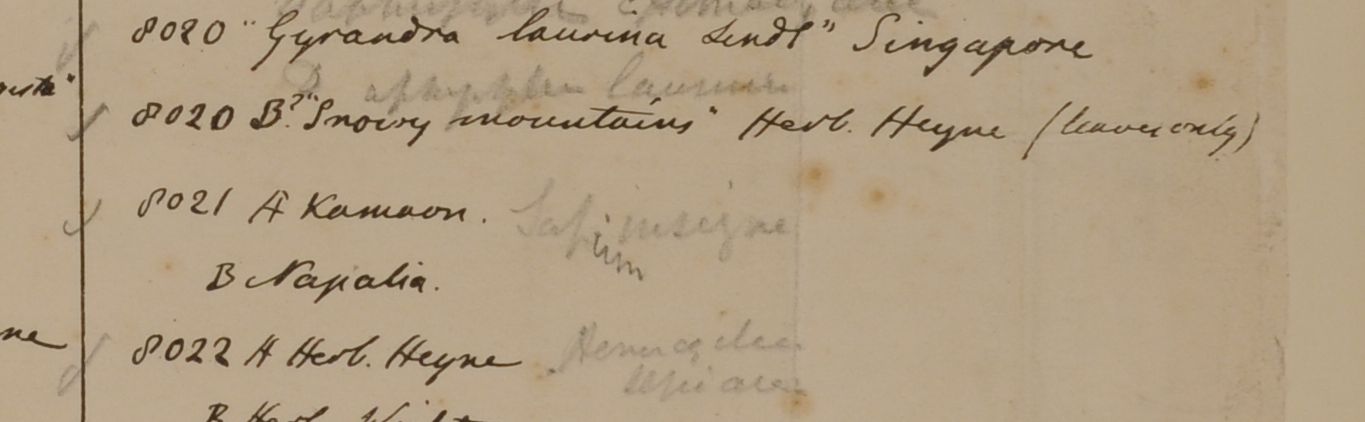 8020 "Gyrandra laurina Lindl" Singapore
laurina
8020 B? "Snowy mountains" Herb. Heyne (leaves only)
8021 A Kamaon. Sapium insigne
B Napalia.
ne
8022 A Herb. Heyne
B Herb. Wight